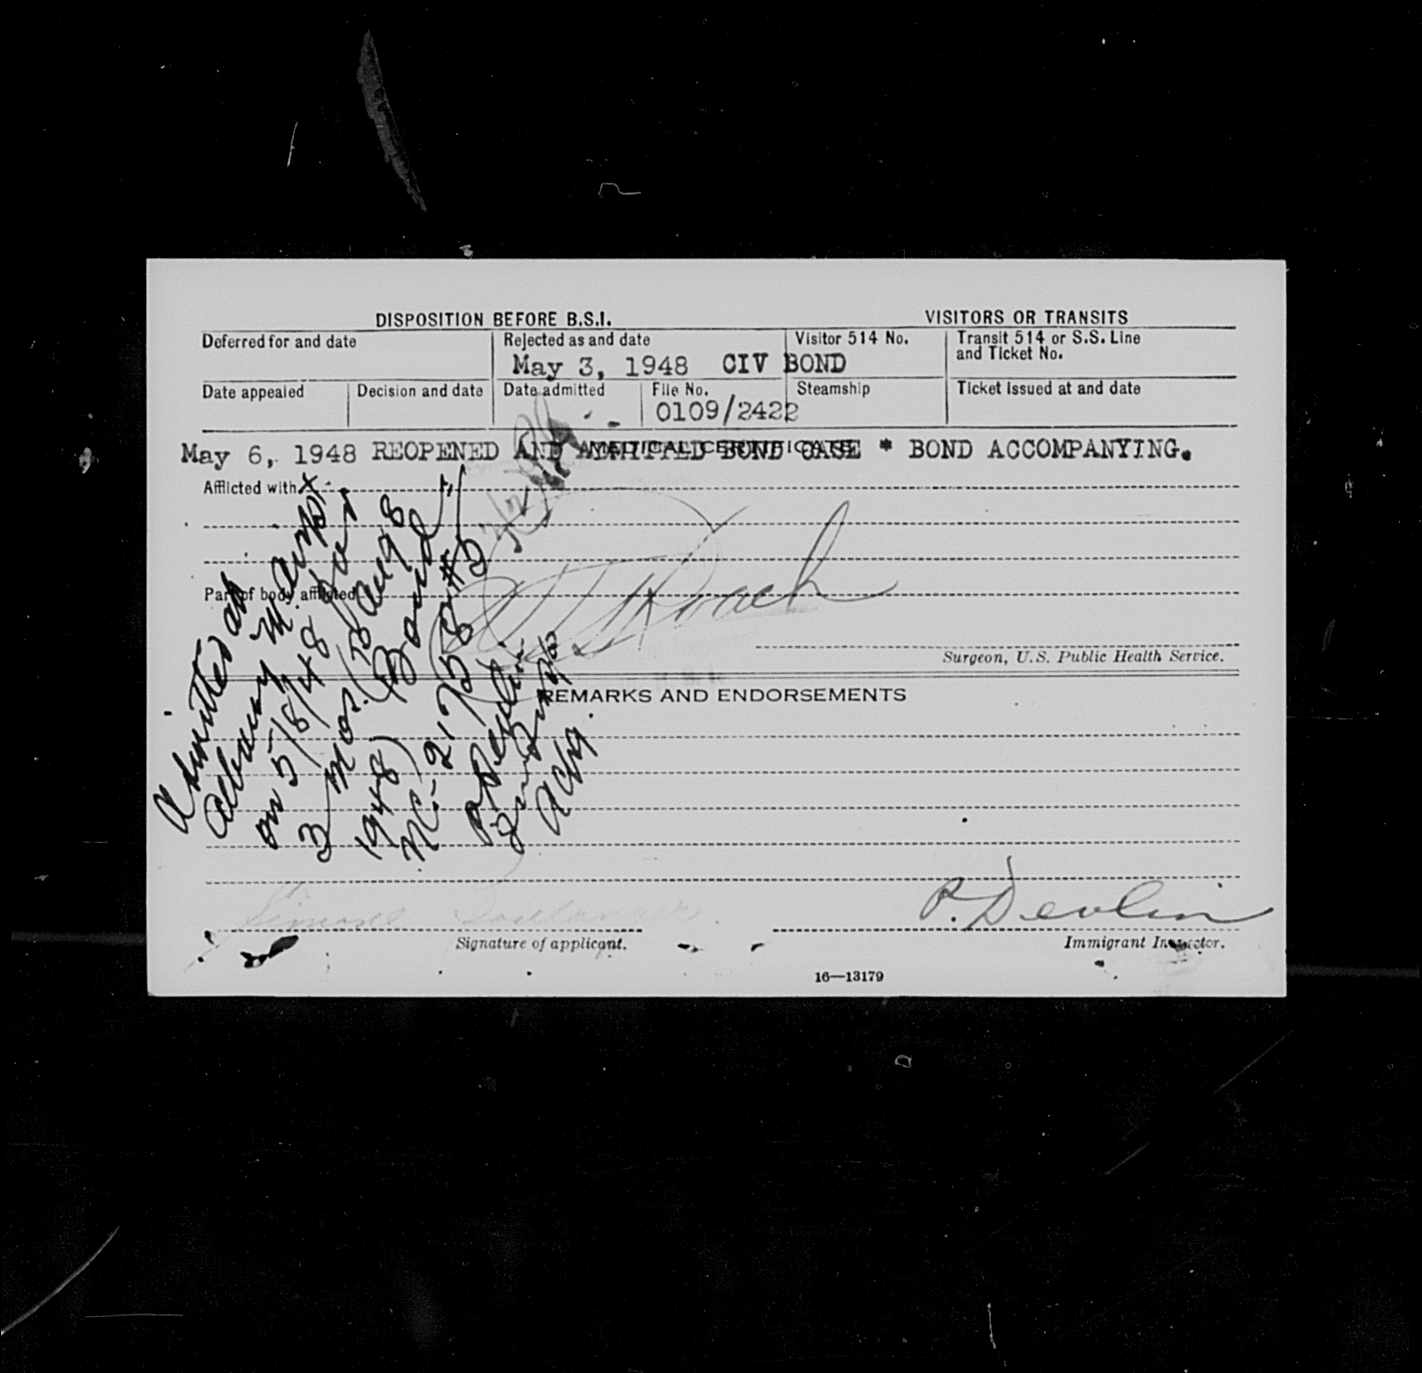 DISPOSITION BEFORE B.S.I. VISITORS OR TRANSITS
Deferred for and date Rejected as and date Visitor 514 No. Transit 514 or S.S. Line and Ticket No.
May 3, 1948 CIV BOND
Date appealed Decision and date Date admitted File No. Steamship Ticket issued at and date
0109/2422
MEDICAL CERTIFICATE
May 6, 1948 REOPENED AND ADMITTED BOND CASE * BOND ACCOMPANYING.
Afflicted with
Part of body afflicted
Roach
Surgeon, U.S. Public Health Service.
REMARKS AND ENDORSEMENTS
Admitted at
Albany N.
on 5/8/48 for
3 mos. (
1948) (Bond
P. Devlin
Simone
P. Devlin
Signature of applicant. Immigrant Inspector.
16—13179